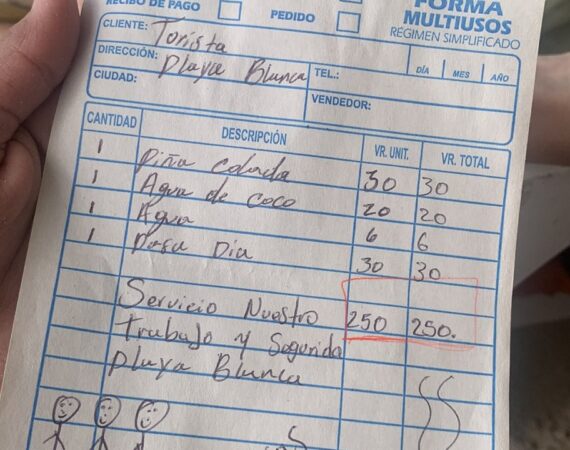 RECIBO DE PAGO
PEDIDO
FORMA
MULTIUSOS
RÉGIMEN SIMPLIFICADO
CLIENTE: Torista
DIRECCIÓN: Playa Blanca
CIUDAD:
TEL.:
DÍA MES AÑO
VENDEDOR:
CANTIDAD DESCRIPCIÓN VR. UNIT. VR. TOTAL
1 Piña Colada 30 30
1 Agua de coco 20 20
1 Agua 6 6
1 Pasa Dia 30 30
Servicio Nuestro 250 250.
Trabajo y Segurida
Playa Blanca